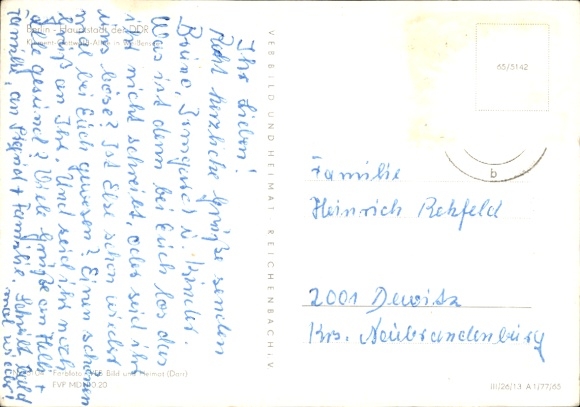 Ihr Lieben!
Recht herzliche Grüße senden
Bruno, Irmgard u. Kinder.
Was ist denn bei Euch los das
ihr nicht schreibt, oder seid ihr
uns böse? Ist Else schon wieder
mal bei Euch gewesen? Einen schönen
Gruß an Ihr. Und seid ihr noch
alle gesund? Viele Grüße an +
Familie, an + Familie. Schreibt bald
mal wieder!
Berlin - Hauptstadt der DDR
VEB BILD UND HEIMAT REICHENBACH i.V
65/5142
b
Familie
Heinrich Rehfeld
2001 Dewitz
Krs. Neubrandenburg
Farbfoto: VEB Bild und Heimat (Darr)
III/26/13 A1/77/65